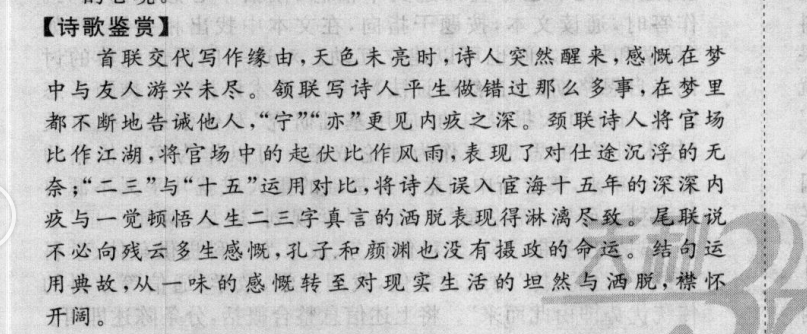 【诗歌鉴赏】
首联交代写作缘由,天色未亮时,诗人突然醒来,感慨在梦
中与友人游兴未尽。颔联写诗人平生做错过那么多事,在梦里
都不断地告诫他人,“宁”“亦”更见内疚之深。颈联诗人将官场
比作江湖,将官场中的起伏比作风雨,表现了对仕途沉浮的无
奈;“二三”与“十五”运用对比,将诗人误入宦海十五年的深深内
疚与一觉顿悟人生二三字真言的洒脱表现得淋漓尽致。尾联说
不必向残云多生感慨,孔子和颜渊也没有摄政的命运。结句运
用典故,从一味的感慨转至对现实生活的坦然与洒脱,襟怀
开阔。